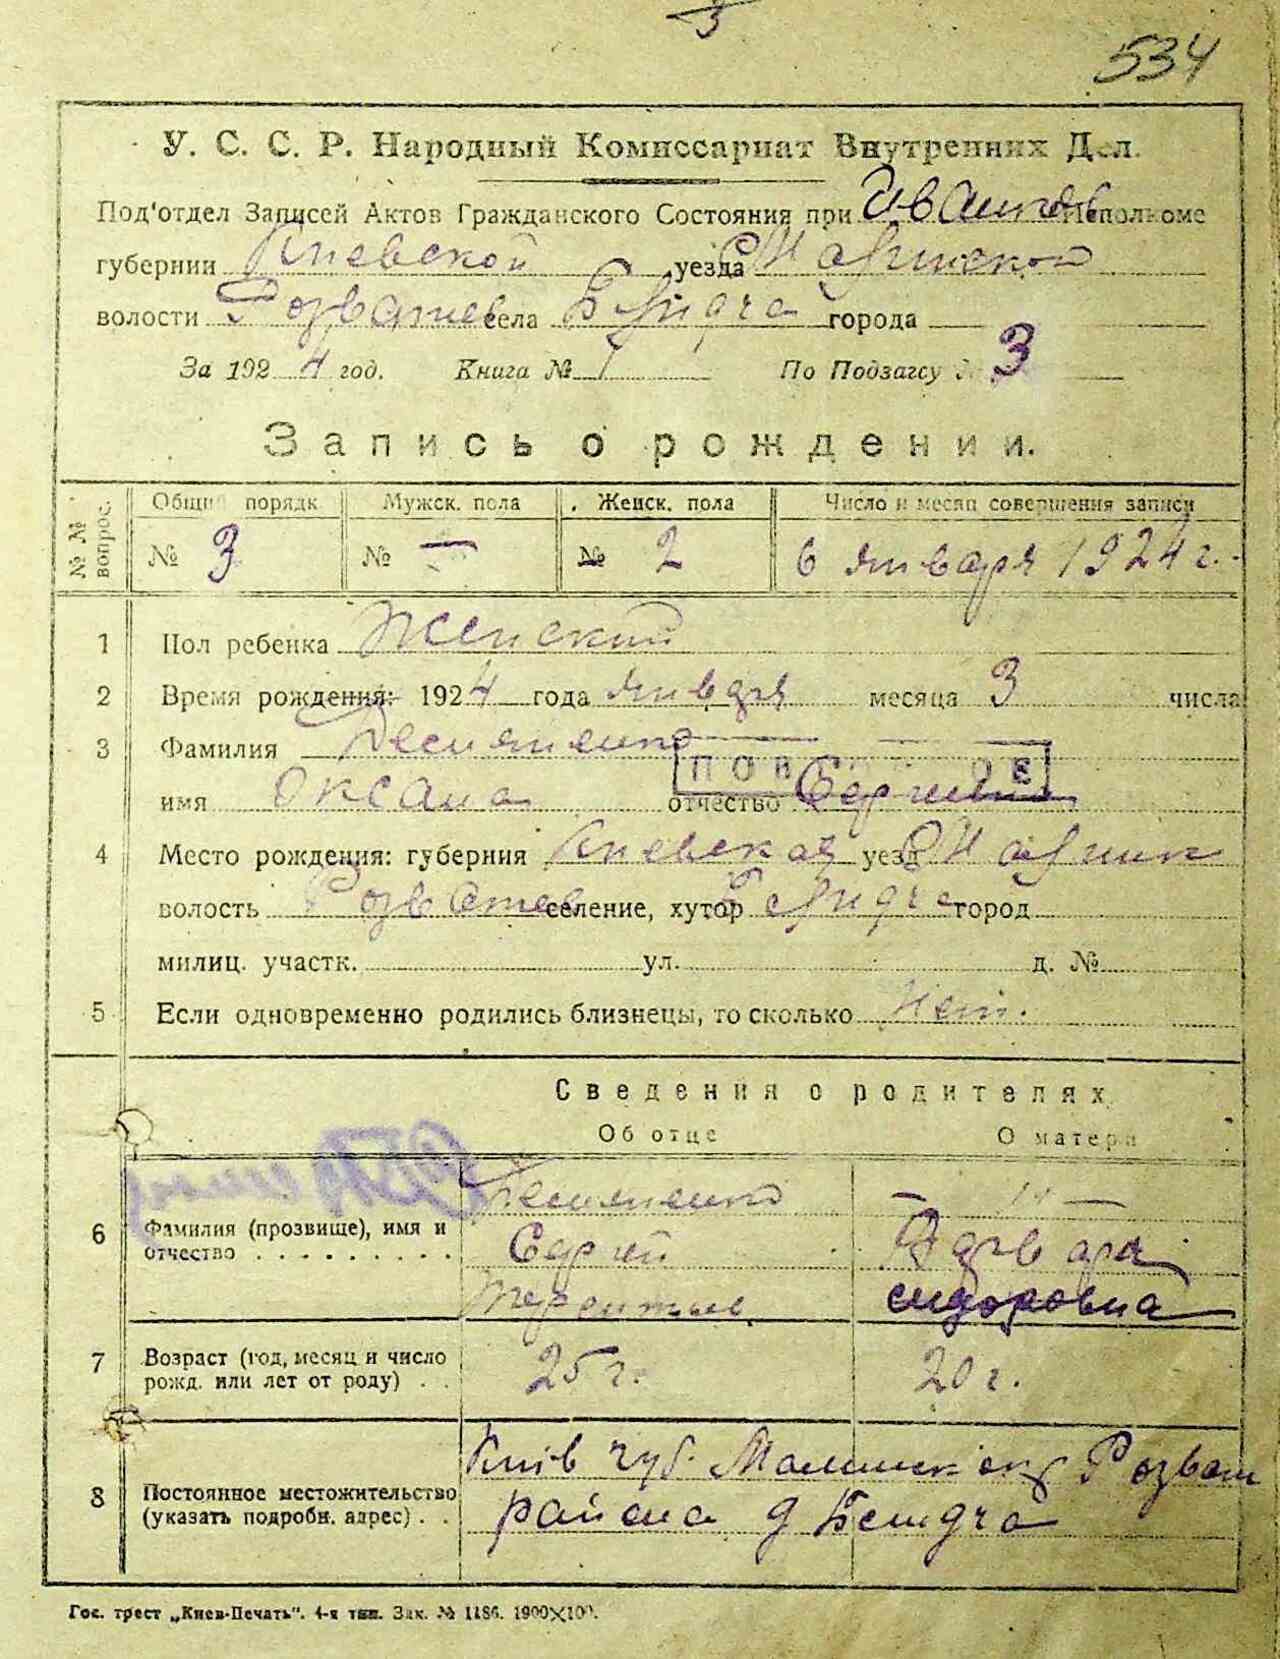 3
534
У. С. С. Р. Народный Комиссариат Внутренних Дел.
Под'отдел Записей Актов Гражданского Состояния при Исполкоме
губернии Киевской уезда
волости села города
За 1924 год. Книга № 1 По Подзагсу № 3
Запись о рождении.
№№ вопрос.
Общий порядк Мужск. пола Женск. пола Число и месяц совершения записи
№ 3 № — № 2 6 января 1924 г.
1 Пол ребенка Женский
2 Время рождения: 1924 года января месяца 3 числа
3 Фамилия
имя Оксана отчество
4 Место рождения: губерния Киевская уезд
волость селение, хутор город
милиц. участк. ул. д. №
5 Если одновременно родились близнецы, то сколько Нет.
Сведения о родителях
Об отце О матери
6 Фамилия (прозвище), имя и
отчество
Сергей
Сидоровна
7 Возраст (год, месяц и число
рожд. или лет от роду) . .
25 г. 20 г.
8 Постоянное местожительство
(указать подробн. адрес) . .
Київ губ. Розваж
района д
Гос. трест „Киев-Печать“. 4-я тип. Зак. № 1186. 1900×100.